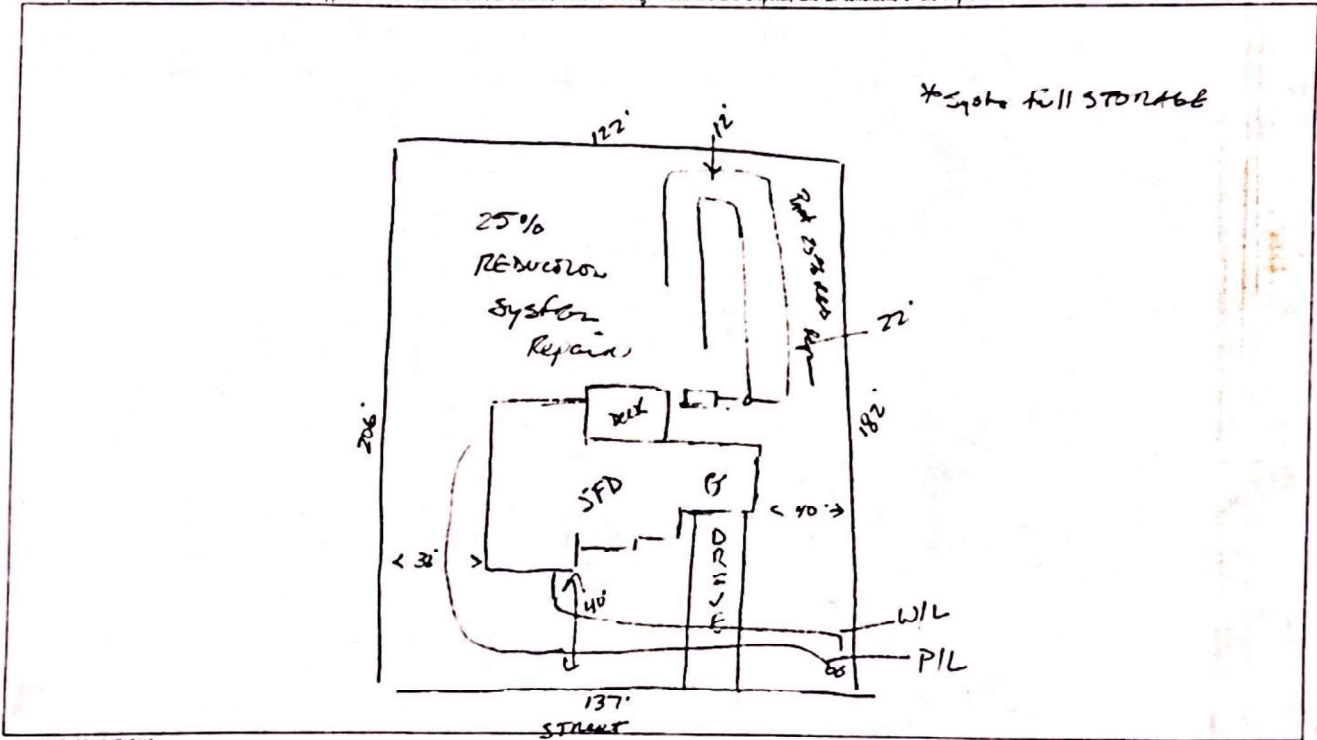 full STORAGE
122'
12'
25%
REDUCTION
System
Repair
25%
22'
206'
182'
DECK
SFD
< 40' >
DRIVE
40'
W/L
P/L
137'
STREET